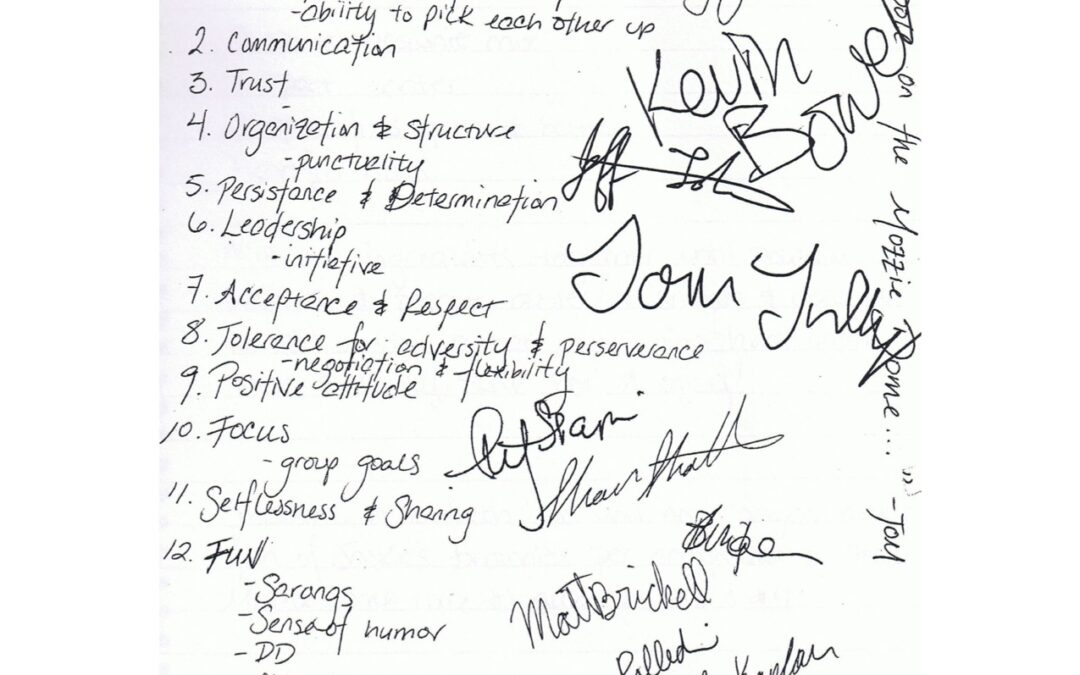 -ability to pick each other up
2. Communication
3. Trust
4. Organization & structure
-punctuality
5. Persistance & Determination
6. Leadership
-initiative
7. Acceptance & Respect
8. Tolerance for adversity & perserverance
-negotiation & flexibility
9. Positive attitude
10. Focus
-group goals
11. Selflessness & Sharing
12. FUN
-Sarongs
-Sense of humor
-DD
Kevin
Tom
Matt Brickell
Kaplan
on the Mozzie Dome... -Tou